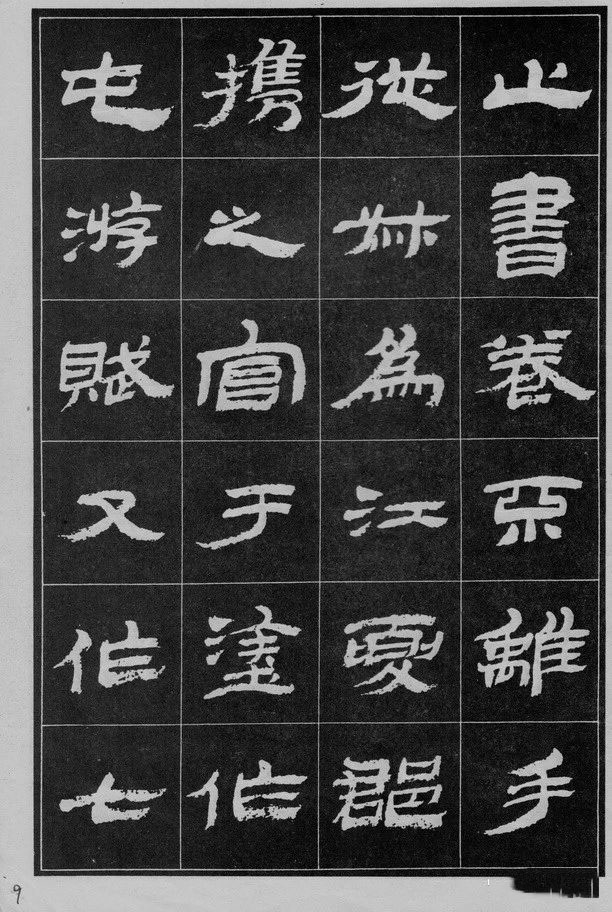 止書卷不離手
從叔為江夏郡
攜之官于塗作
屯游賦又作七
9